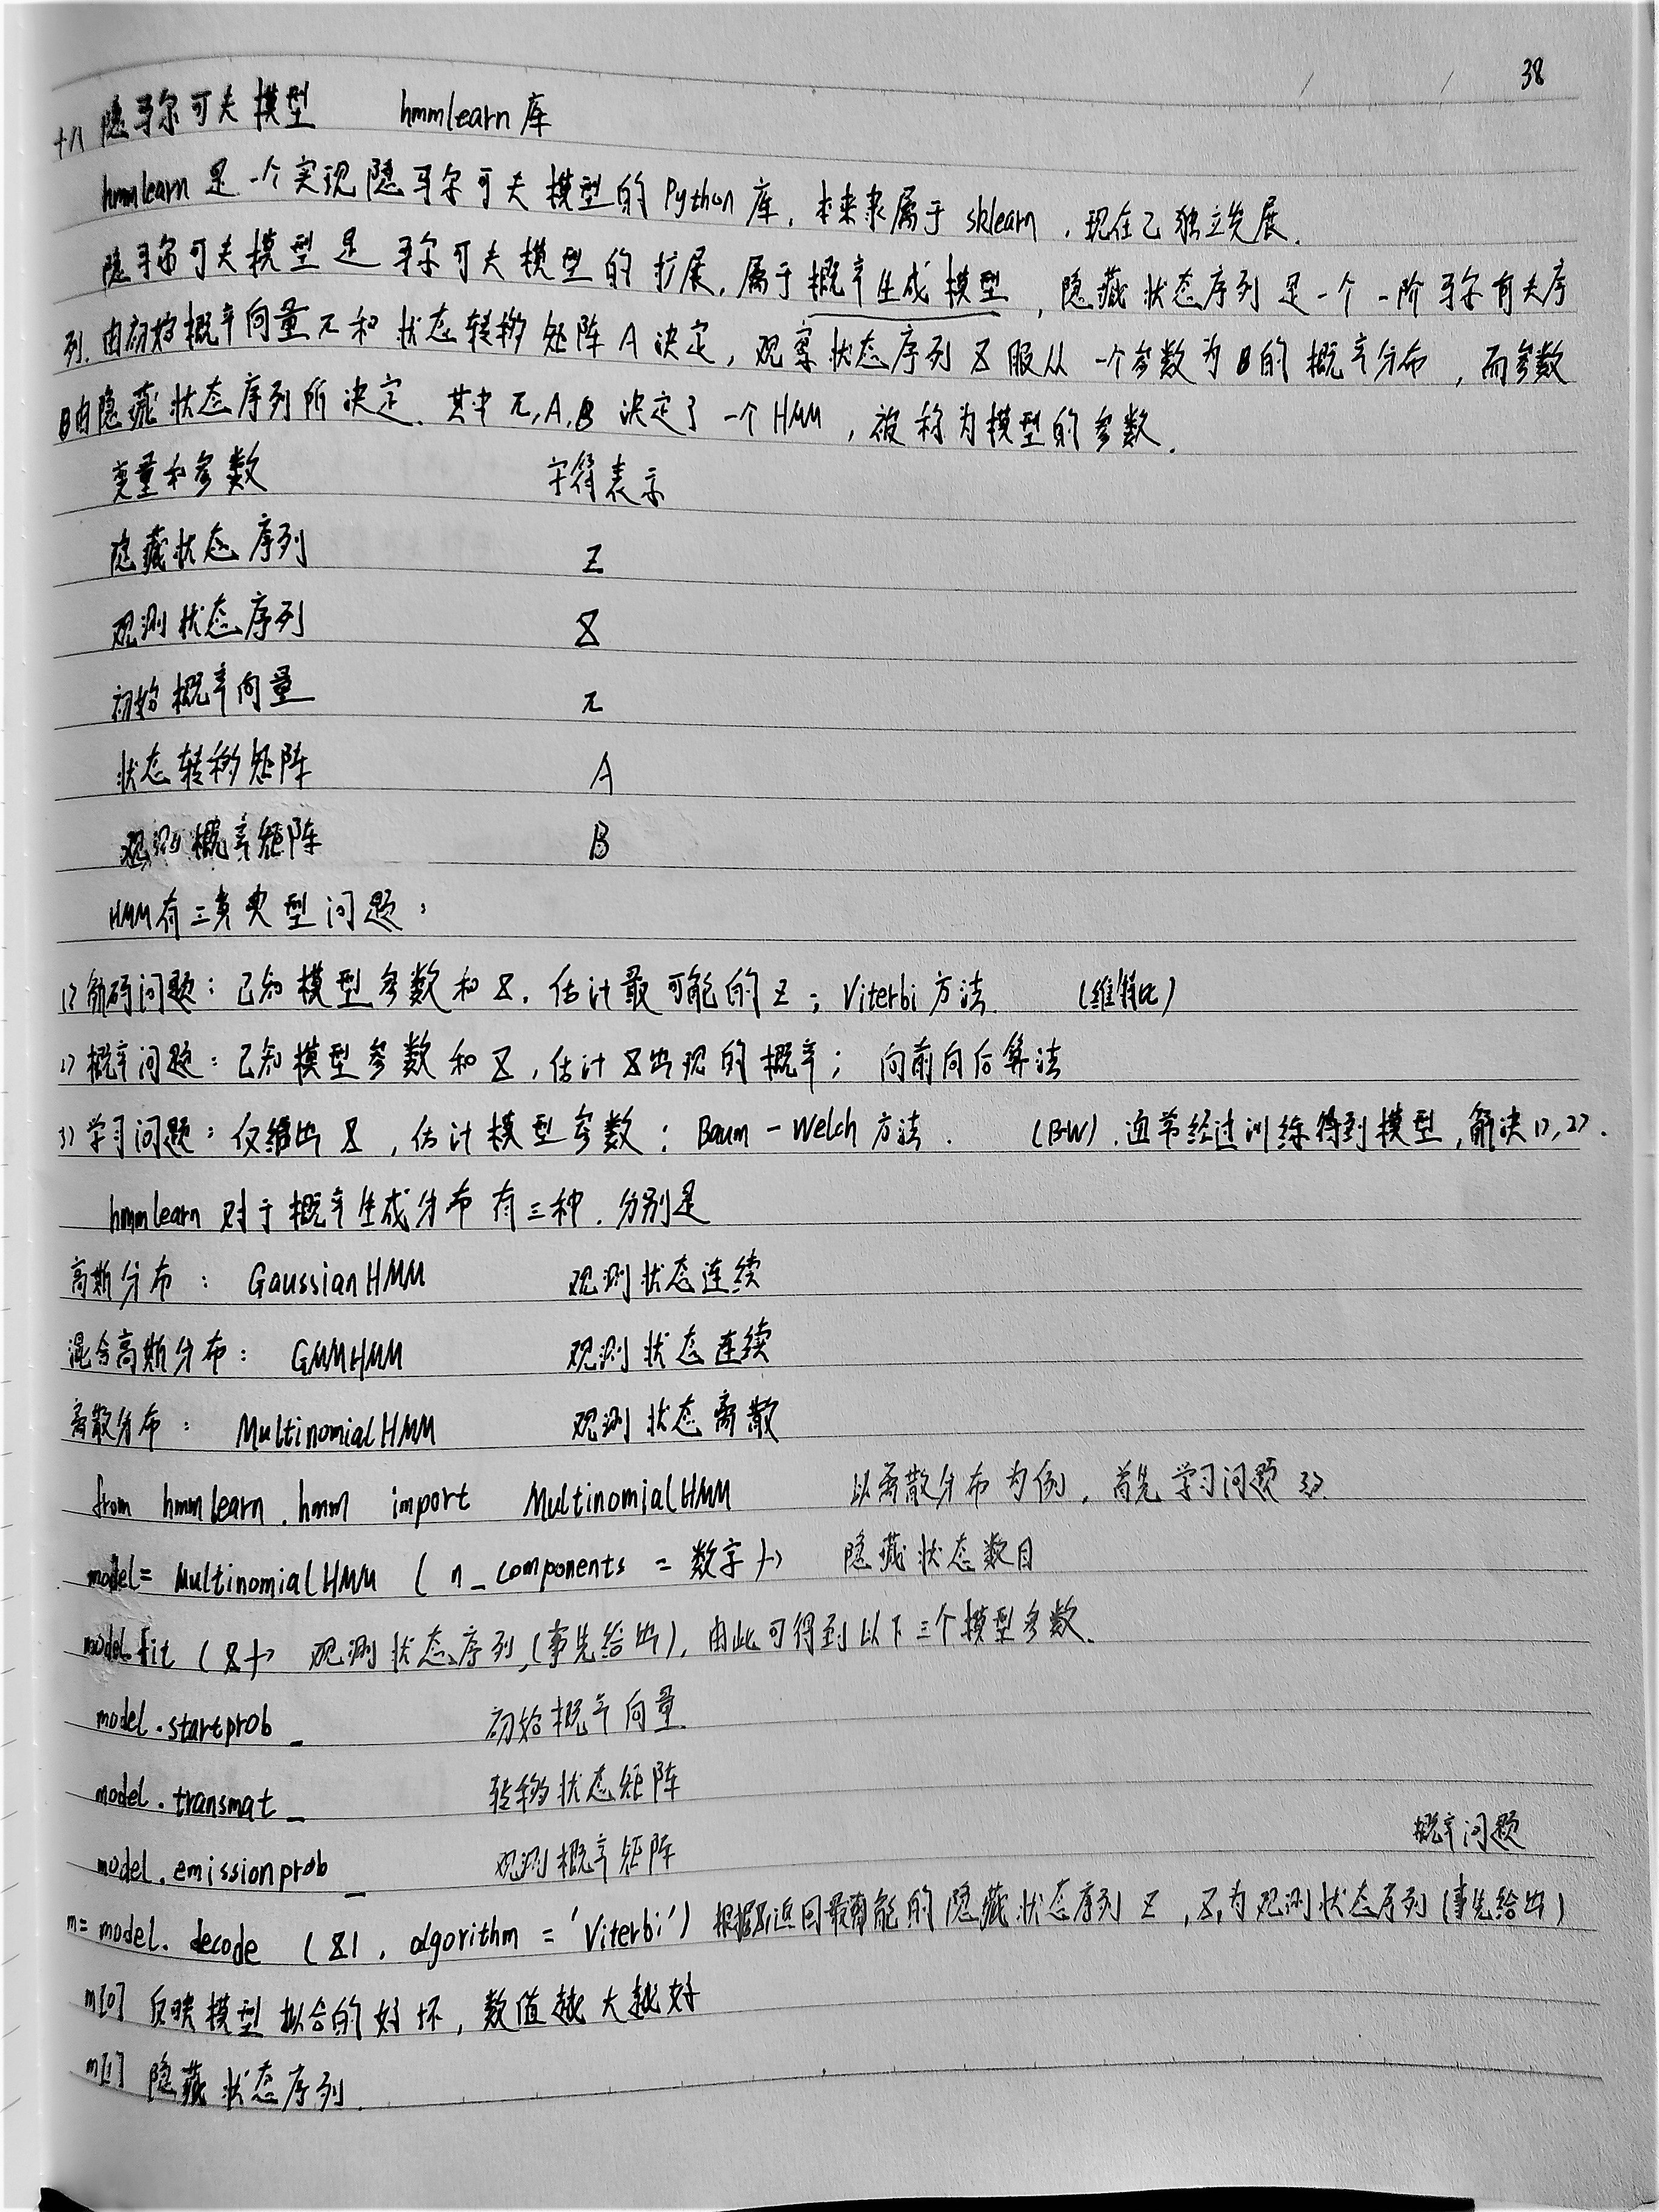 38
十八 隐马尔可夫模型 hmmlearn库
hmmlearn是一个实现隐马尔可夫模型的Python库,本来隶属于sklearn,现在已独立发展.
隐马尔可夫模型是马尔可夫模型的扩展,属于概率生成模型,隐藏状态序列是一个一阶马尔可夫序
列.由初始概率向量π和状态转移矩阵A决定,观察状态序列X服从一个参数为B的概率分布,而参数
B由隐藏状态序列所决定.其中π,A,B决定了一个HMM,被称为模型的参数.
变量和参数 字符表示
隐藏状态序列 Z
观测状态序列 X
初始概率向量 π
状态转移矩阵 A
观测概率矩阵 B
HMM有三类典型问题:
1)解码问题:已知模型参数和X,估计最可能的Z;Viterbi方法. (维特比)
2)概率问题:已知模型参数和X,估计X出现的概率;向前向后算法
3)学习问题:仅给出X,估计模型参数;Baum-Welch方法. (BW).通常经过训练得到模型,解决1),2).
hmmlearn对于概率生成分布有三种.分别是
高斯分布: GaussianHMM 观测状态连续
混合高斯分布: GMMHMM 观测状态连续
离散分布: MultinomialHMM 观测状态离散
from hmmlearn.hmm import MultinomialHMM 以离散分布为例,首先学习问题3).
model=MultinomialHMM(n_components=数字) 隐藏状态数目
model.fit(X) 观测状态序列,(事先给出),由此可得到以下三个模型参数.
model.startprob_ 初始概率向量.
model.transmat_ 转移状态矩阵
model.emissionprob_ 观测概率矩阵
概率问题
m=model.decode(X1,algorithm='Viterbi')根据X1返回最可能的隐藏状态序列Z,X1为观测状态序列(事先给出)
m[0] 反映模型拟合的好坏,数值越大越好
m[1] 隐藏状态序列.